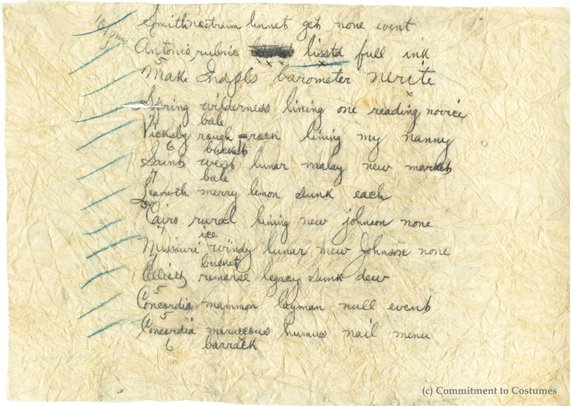 10 pm
Smith nostrum linnet get none event
Antonio rubric lissta full ink
5
Make Indpls barometer nerite
Spring wilderness lining one reading novice
7 bale
Vicksbg rough rack lining my nanny
6 bucket
Saint west lunar malay new markets
7 bale
Leavwth merry lemon sunk each
5
Cairo rural lining new johnson none
7 ice
Missouri windy lunar mew johnson none
bucket
Celliott removal legacy sunk dew
5
Concordia mammon layman null events
5
Concordia merraccous humus nail menu
6 barrack
(c) Commitment to Costumes